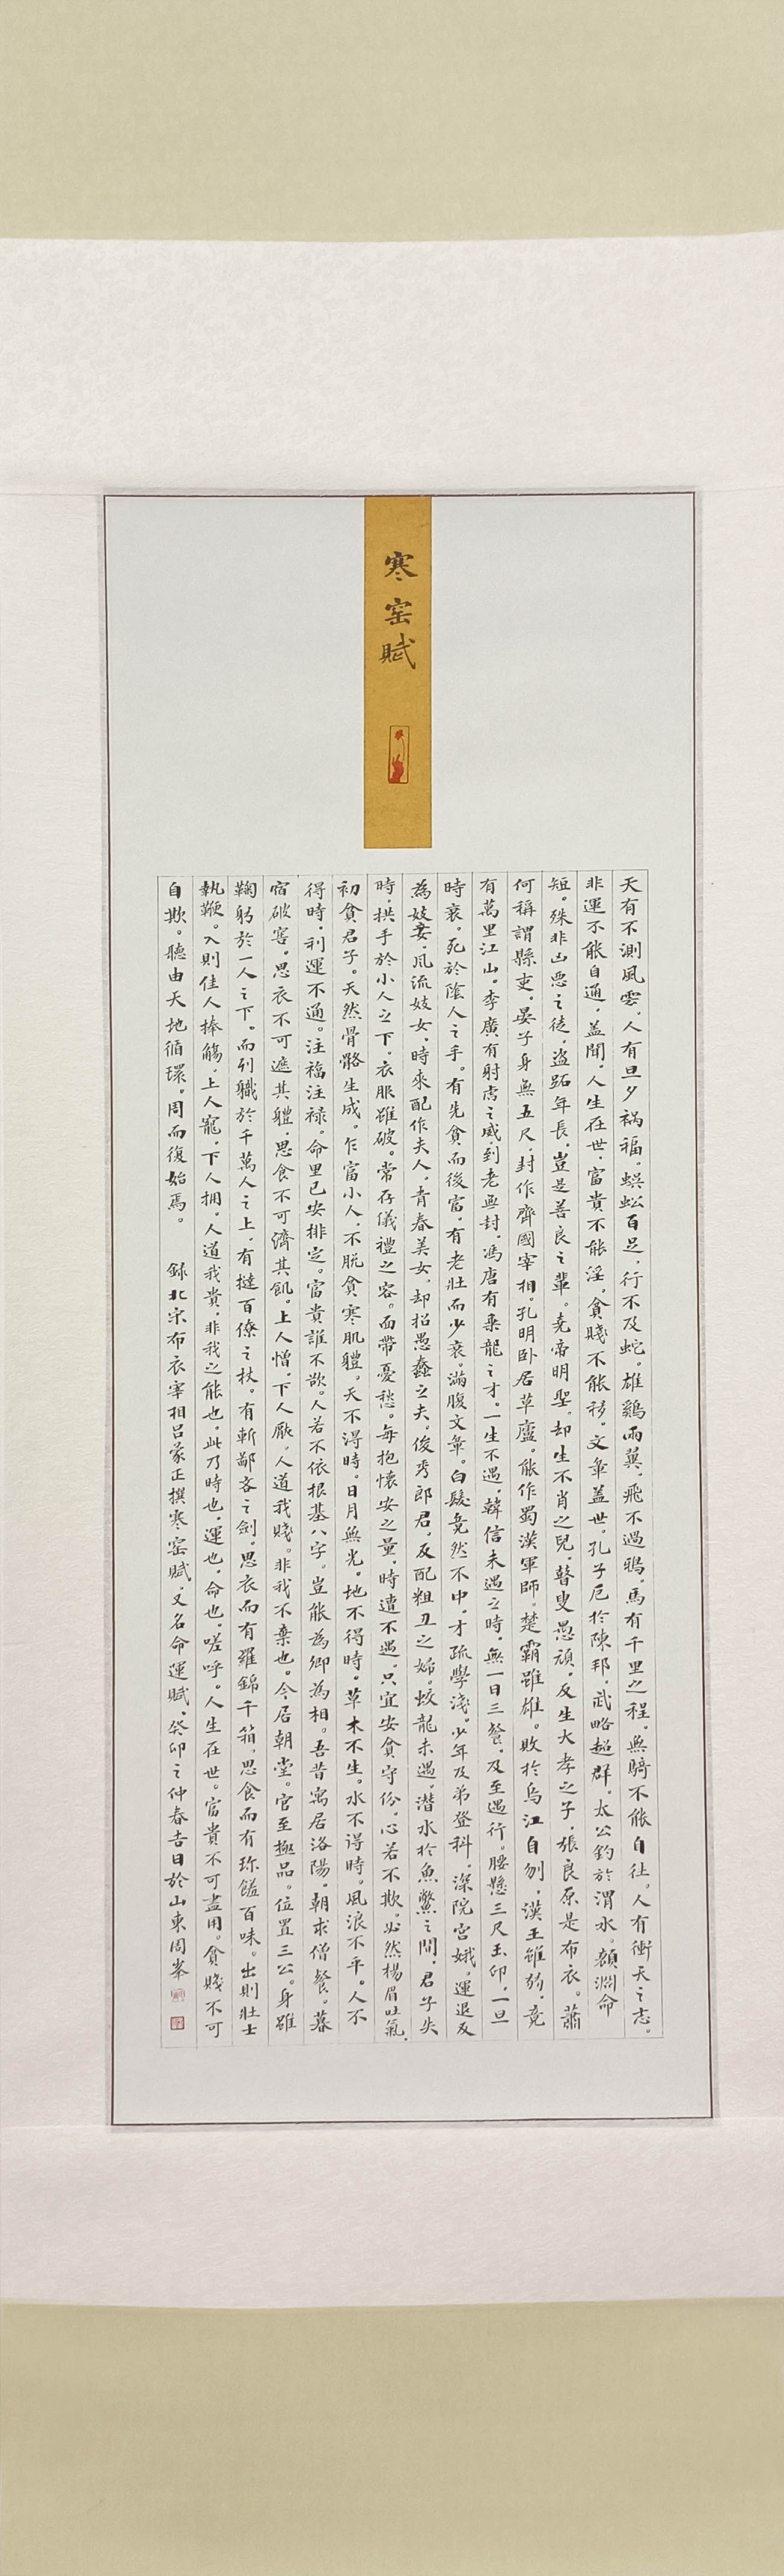 寒窑賦
天有不測風雲，人有旦夕禍福。蜈蚣百足，行不及蛇。雄鷄兩翼，飛不過鴉。馬有千里之程，無騎不能自往。人有衝天之志，
非運不能自通，盖聞，人生在世，富貴不能淫，貧賤不能移。文章盖世，孔子厄於陳邦，武略超群，太公釣於渭水。顏淵命
短，殊非凶惡之徒，盗跖年長，豈是善良之輩。堯帝明聖，却生不肖之兒，瞽叟愚頑，反生大孝之子，張良原是布衣。蕭
何稱謂縣吏。晏子身無五尺，封作齊國宰相，孔明卧居草廬，能作蜀漢軍師，楚霸雖雄，敗於烏江自刎，漢王雖弱，竟
有萬里江山，李廣有射虎之威，到老無封，馮唐有乘龍之才，一生不遇，韓信未遇之時，無一日三餐，及至遇行，腰懸三尺玉印，一旦
時衰，死於陰人之手。有先貧而後富，有老壯而少衰，滿腹文章，白髮竟然不中，才疏學淺，少年及弟登科，深院宫娥，運退反
為妓妾，風流妓女，時來配作夫人，青春美女，却招愚蠢之夫，俊秀郎君，反配粗丑之婦，蛟龍未遇，潜水於魚鱉之間，君子失
時，拱手於小人之下，衣服雖破，常存儀禮之容，面帶憂愁，每抱懷安之量，時遭不遇，只宜安貧守份，心若不欺，必然楊眉吐氣，
初貧君子，天然骨骼生成，乍富小人，不脱貧寒肌體，天不得時，日月無光，地不得時，草木不生，水不得時，風浪不平，人不
得時，利運不通。注福注禄，命里已安排定，富貴誰不欲，人若不依根基八字，豈能為卿為相，吾昔寓居洛陽，朝求僧餐，暮
宿破窖，思衣不可遮其體，思食不可濟其飢，上人憎，下人厭，人道我賤，非我不棄也。今居朝堂，官至極品，位置三公，身雖
鞠躬於一人之下，而列職於千萬人之上，有撻百僚之杖，有斬鄙吝之劍，思衣而有羅錦千箱，思食而有珍饈百味，出則壯士
執鞭，入則佳人捧觴，上人寵，下人拥，人道我貴，非我之能也，此乃時也，運也，命也，嗟呼。人生在世，富貴不可盡用，貧賤不可
自欺。聽由天地循環，周而復始焉。 録北宋布衣宰相吕蒙正撰寒窑賦，又名命運賦，癸卯之仲春吉日於山東周峯